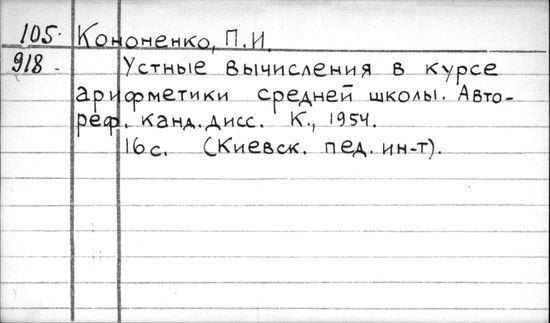 105. Кононенко, П.И.
918. Устные вычисления в курсе
арифметики средней школы. Авто-
реф. канд. дисс. К., 1954.
16с. (Киевск. пед. ин-т).